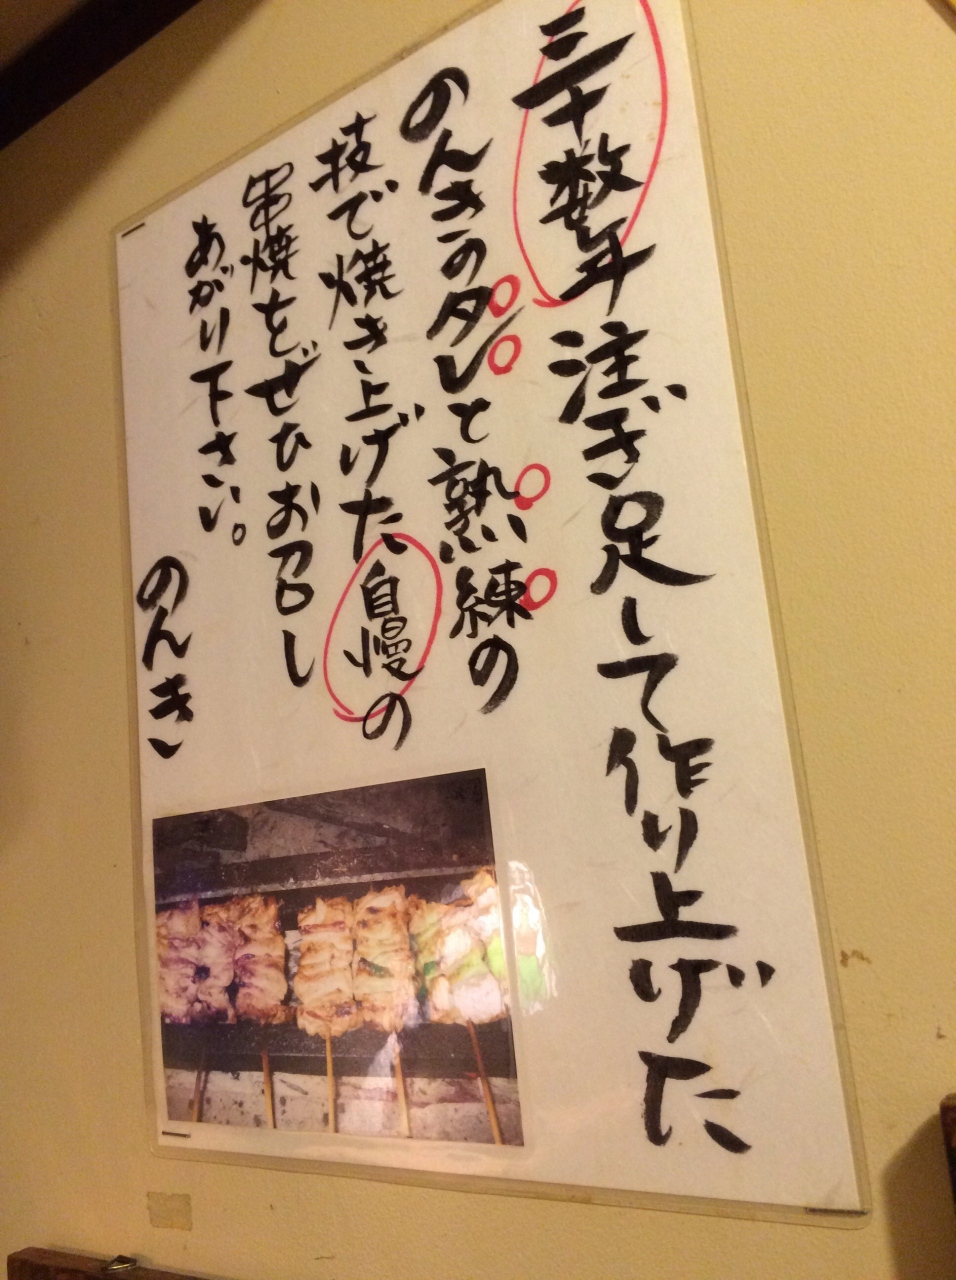 三十数年注ぎ足して作り上げた
のんきのタレと熟練の
技で焼き上げた自慢の
串焼をぜひお召し
あがり下さい。
のんき